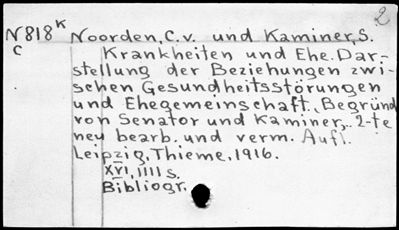 2
N818K Noorden, C.v. und Kaminer, S.
C Krankheiten und Ehe. Dar-
stellung der Beziehungen zwi-
schen Gesundheitsstörungen
und Ehegemeinschaft. Begründ
von Senator und Kaminer,. 2-te
neu bearb. und verm. Aufl.
Leipzig, Thieme, 1916.
XVI, 1111 s.
Bibliogr.